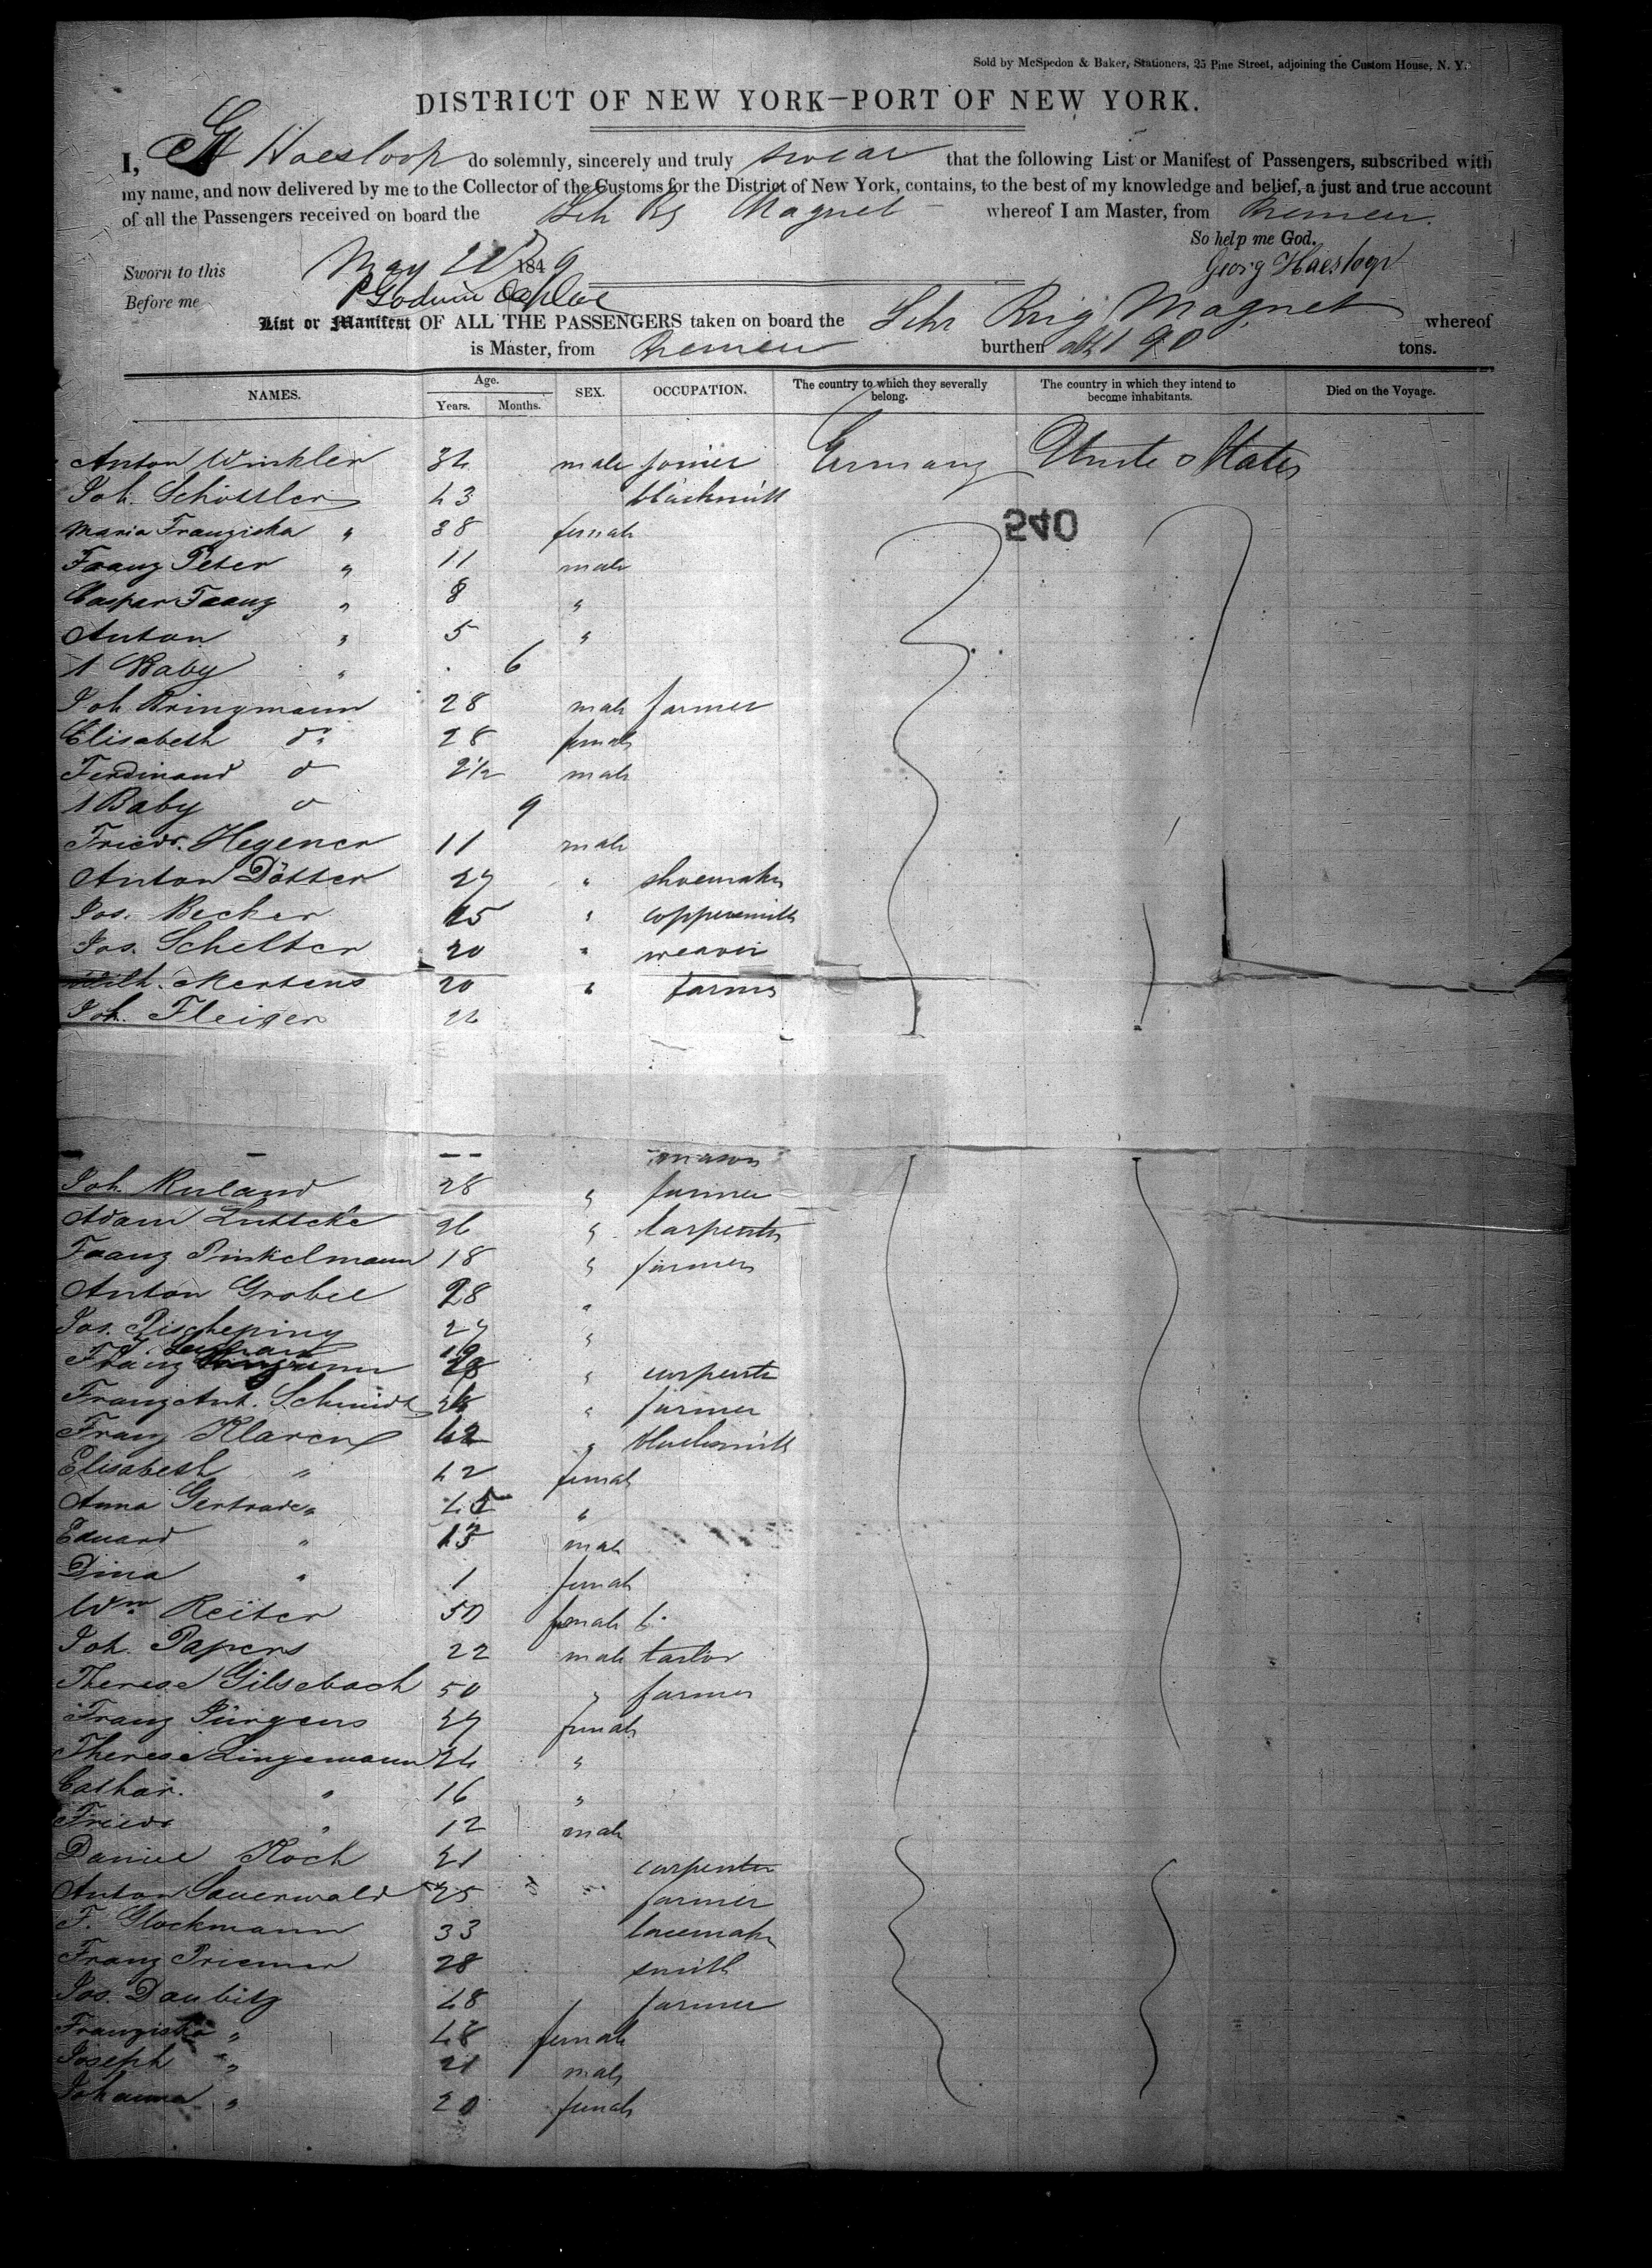 Sold by McSpedon & Baker, Stationers, 25 Pine Street, adjoining the Custom House, N. Y.
DISTRICT OF NEW YORK—PORT OF NEW YORK.
I, Haesloop do solemnly, sincerely and truly swear that the following List or Manifest of Passengers, subscribed with
my name, and now delivered by me to the Collector of the Customs for the District of New York, contains, to the best of my knowledge and belief, a just and true account
of all the Passengers received on board the Sch Bg Magnet whereof I am Master, from Bremen.
So help me God.
Sworn to this May 1849 Georg Haesloop
Before me
List or Manifest OF ALL THE PASSENGERS taken on board the Schr Brig Magnet whereof
is Master, from Bremen burthen 190 tons.
NAMES. Age. Years. Months. SEX. OCCUPATION. The country to which they severally belong. The country in which they intend to become inhabitants. Died on the Voyage.
Anton Winkler 34 male joiner Germany United States
Joh. Schöttler 43 blacksmith
Maria Franziska " 38 female
540
Franz Peter " 11 male
Caspar Franz " 8 "
Anton " 5 "
1 Baby " 6
Joh Bringmann 28 male farmer
Elisabeth do 28 female
Ferdinand do 2½ male
1 Baby do 9
Friedr. Hegener 11 male
Anton Dötter 27 " shoemaker
Jos. Becker 25 " coppersmith
Jos. Schelter 20 " weaver
Wilh. Mertens 20 " farmer
Joh. Fleiger
mason
Joh. Ruland 28 " farmer
Adam Luttcke 26 " Carpenter
Franz Pinkelmann 18 " farmer
Anton Grobel 28 "
Jos. Pischeping 27 "
Franz "  carpenter
Franz Ant. Schmidt " farmer
Franz Klaren 42 " blacksmith
Elisabeth " 42 female
Anna Gertrude " "
Eduard " 13 male
Dina " 1 female
Wm Reiter 50 female
Joh. Papers 22 male tailor
Therese Gilsebach 50 " farmer
Franz Jürgens 27 female
Therese Lingemann 24 "
Cathar. " 16 "
Friedr " 12 male
Daniel Koch 21 carpenter
Anton Sauerwald 25 farmer
F. Glockmann 33 lacemaker
Franz Priemer 28 smith
Jos. Daubitz 48 farmer
Franziska " 48 female
Joseph " 21 male
Johanna " 20 female